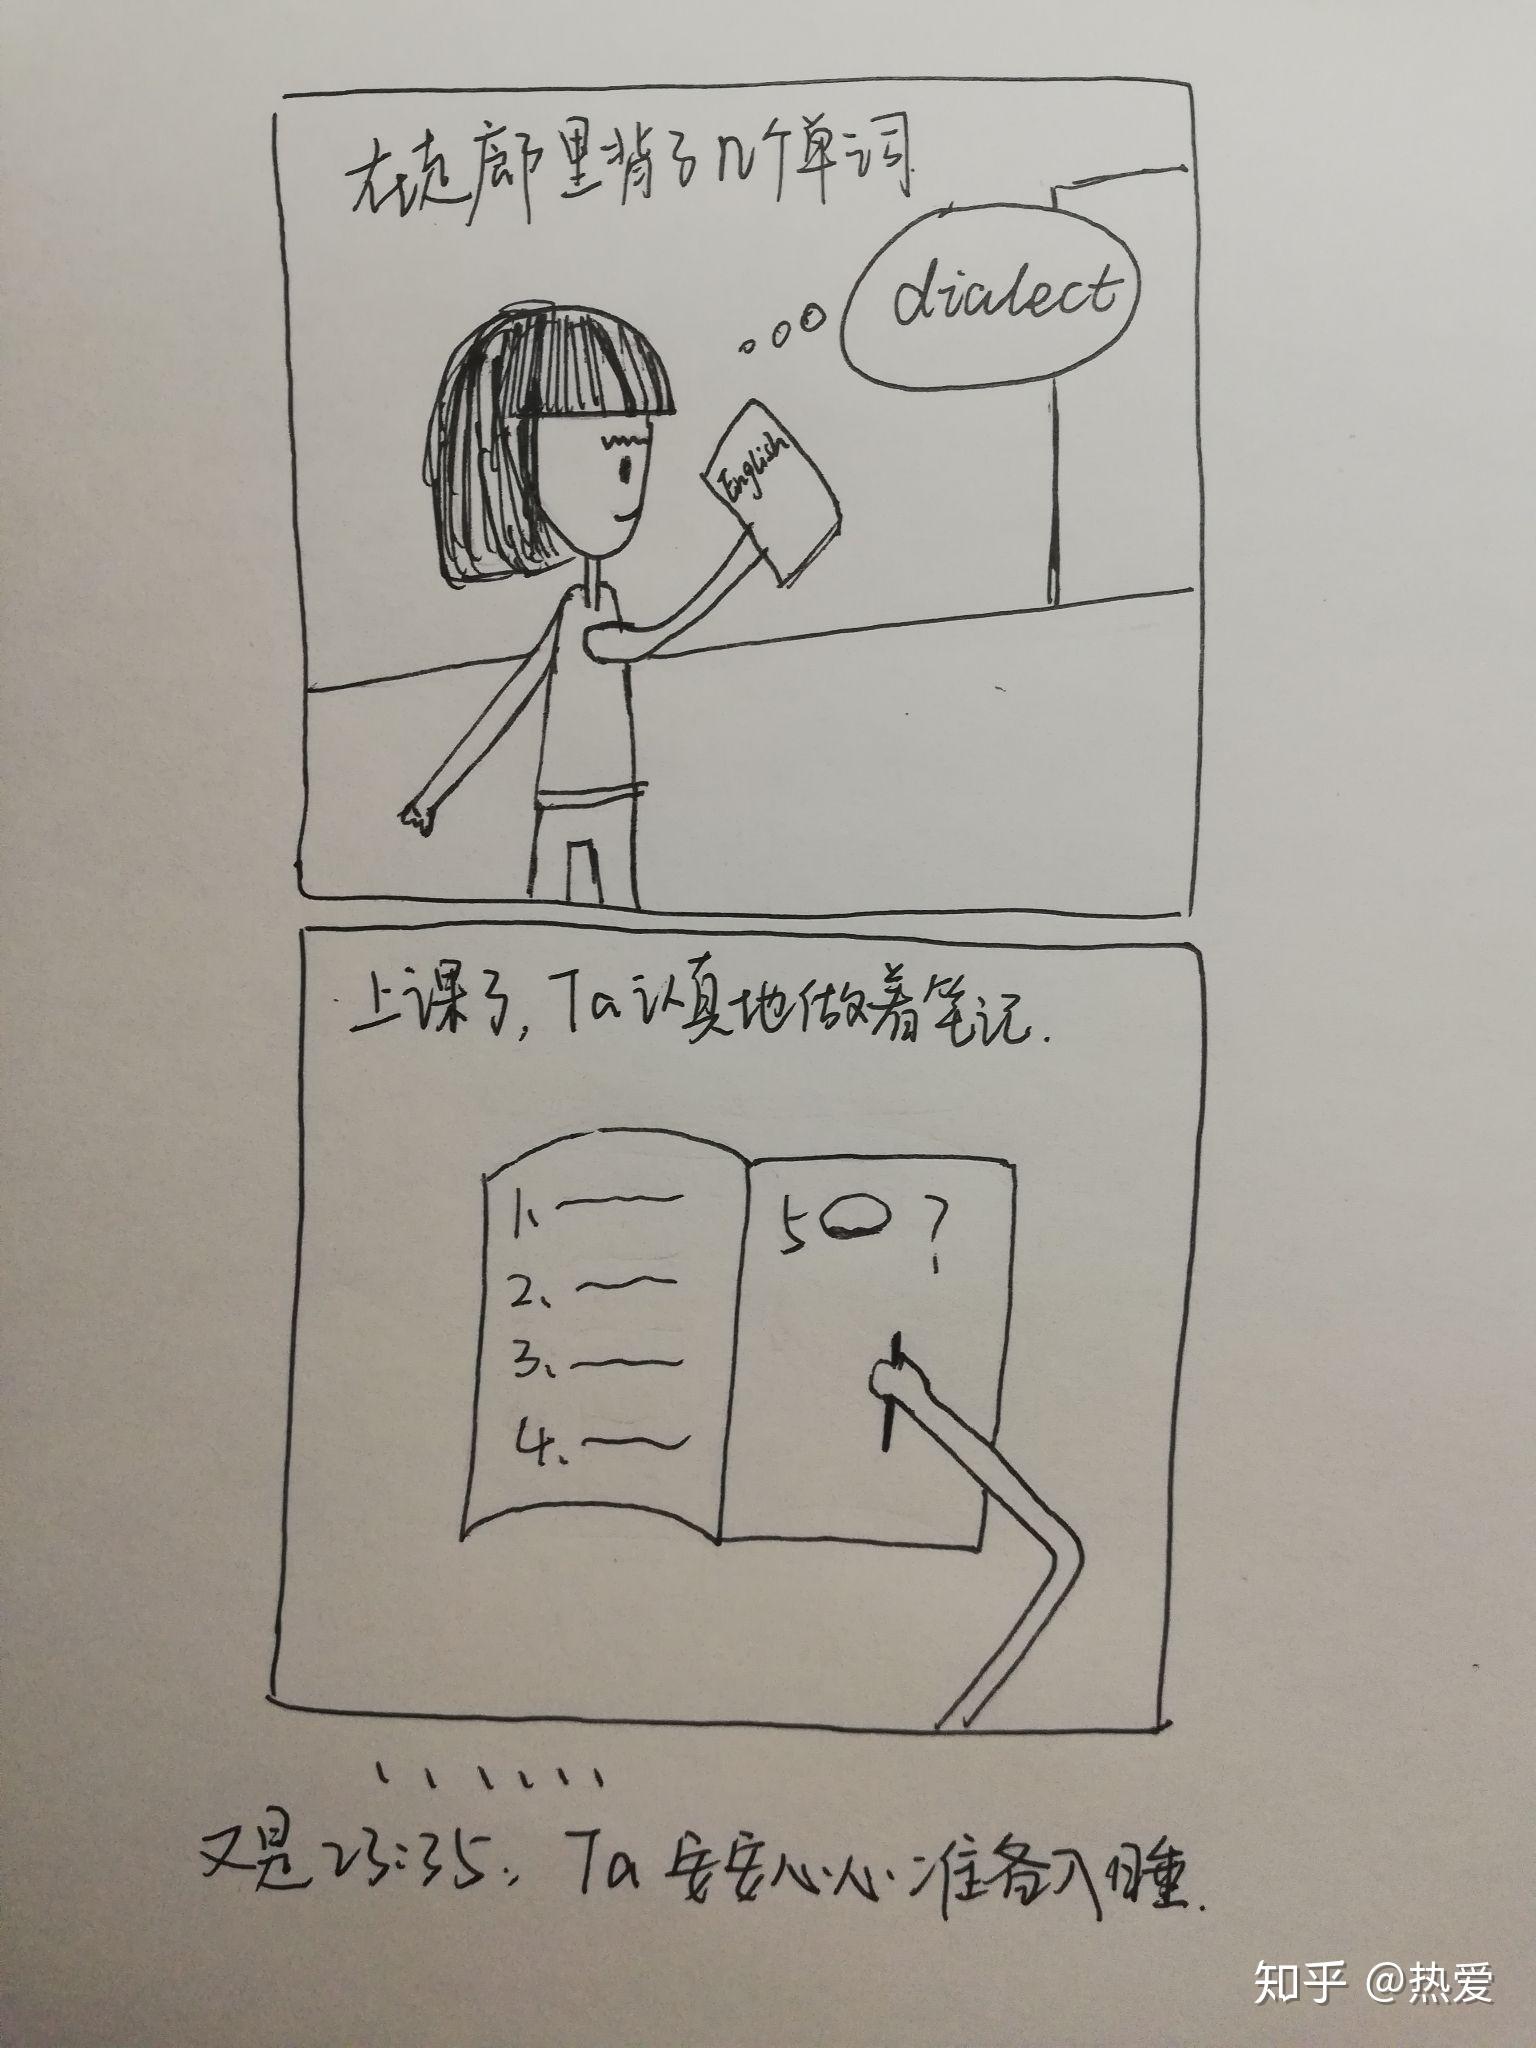 在走廊里背了几个单词
dialect
English
上课了，Ta认真地做着笔记.
1、
2、
3、
4、
5 ?
......
又是23:35，Ta安安心心准备入睡.
知乎 @热爱